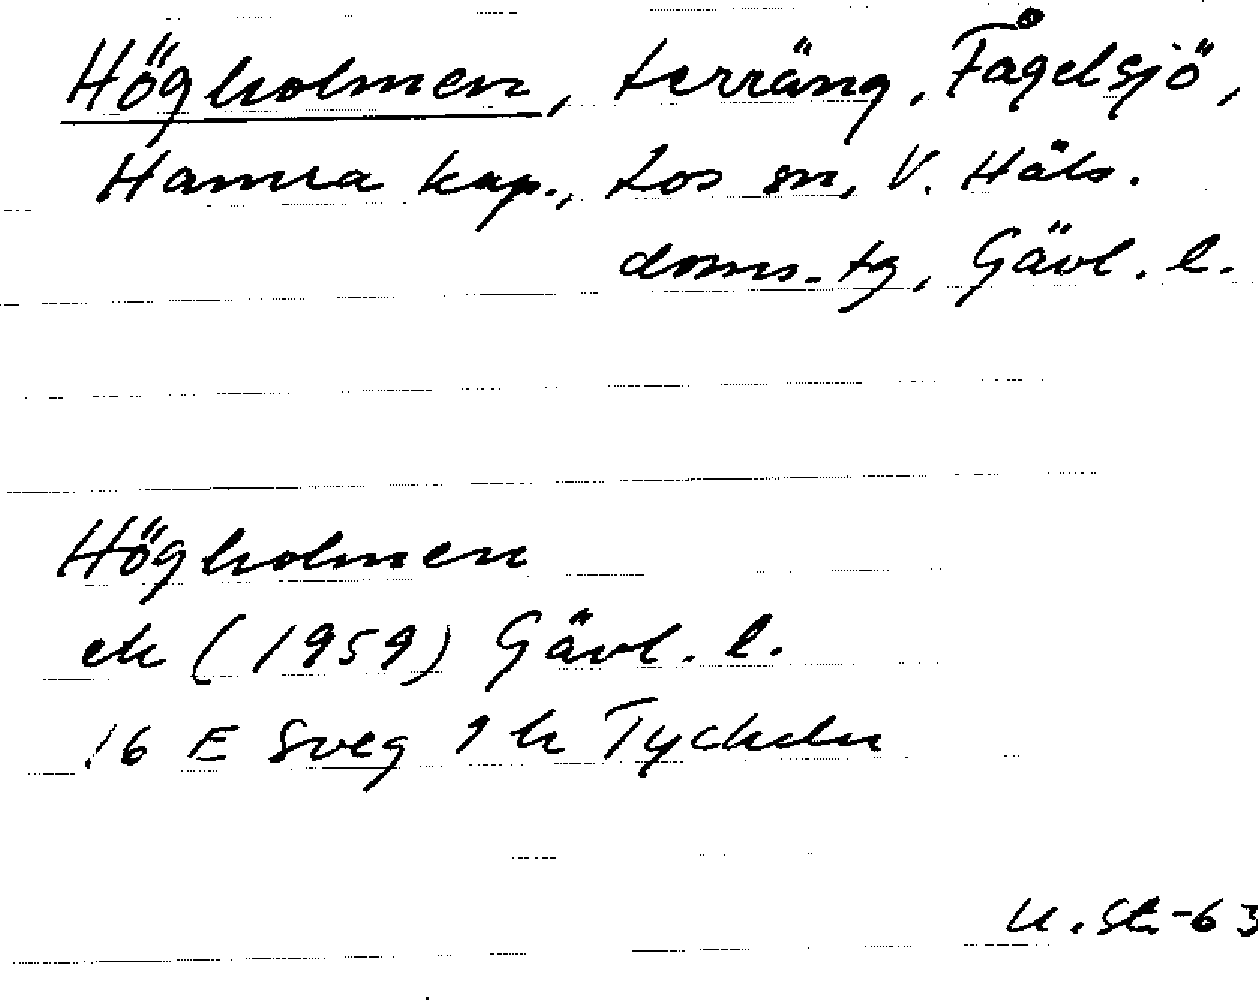 Högholmen, terräng, Fågelsjö,
Hamra kap., Los sn, V. Häls.
doms. tg, Gävl. l.
Högholmen
ek (1959) Gävl. l.
16 E Sveg 1 h Tyckeln
U. St. -63